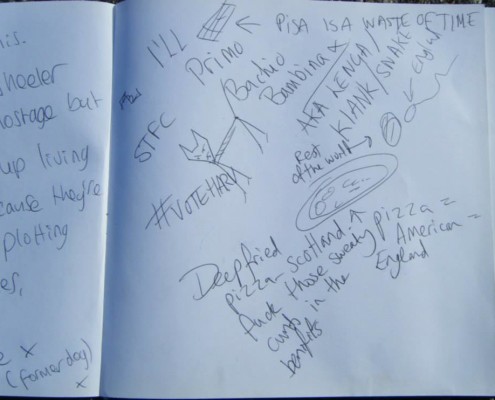 his.
wheeler
hostage but
up living
cause they're
plotting
es,
x
(former day)
x
I'LL
Primo
PISA IS A WASTE OF TIME
Bachio
Bambina
AKA LENGA/
KIANK/SNAKE
England
STFC
Rest
of the world
#VOTEHARV
Deepfried
pizza Scotland
fuck those sweaty
cunts in the
benefits
pizza =
American =
England